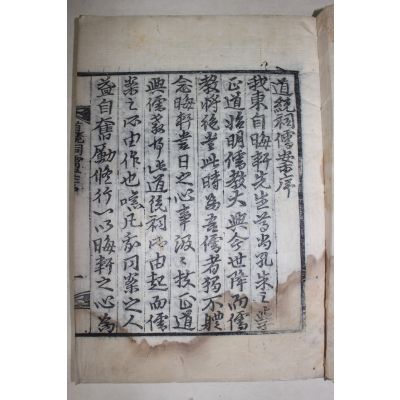 道統祠儒案序
我東自晦軒先生首尚孔朱之學
正道始明儒教大興今世降而儒
教將絕當此時為吾儒者獨不體
念晦軒當日之心事汲汲扶正道
興儒教乎此道統祠所由起而儒
案之所由作也嗚凡我同案之人
益自奮勵修行以晦軒之心為
道統祠儒案